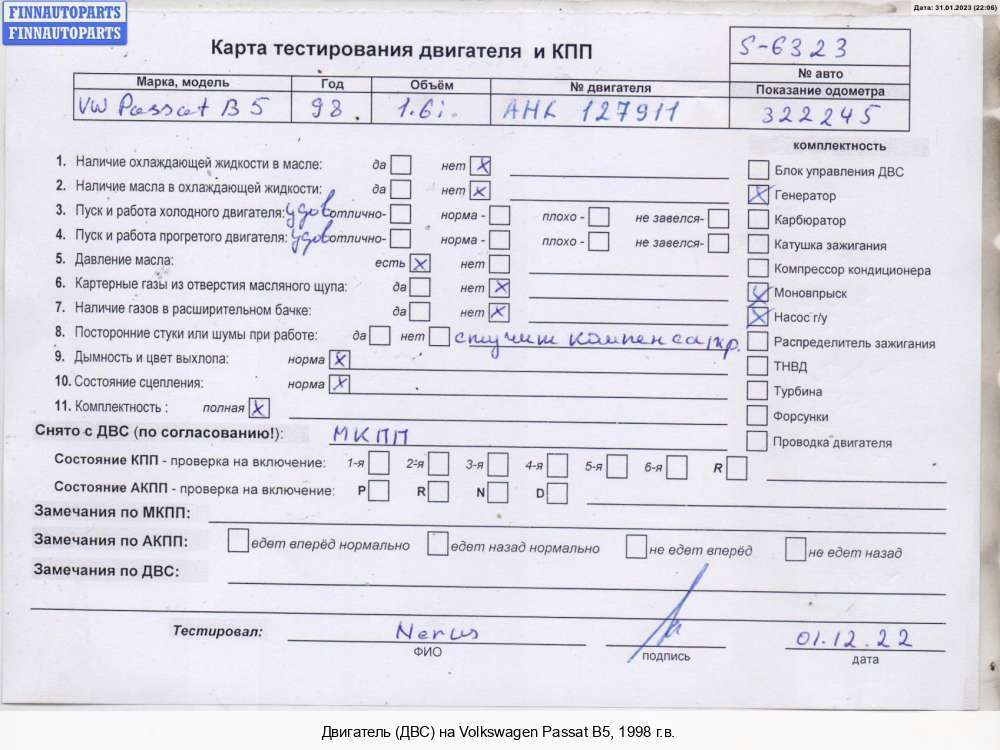 FINNAUTOPARTS
FINNAUTOPARTS
Дата: 31.01.2023 (22:06)
Карта тестирования двигателя и КПП
S-6323
№ авто
Марка, модель Год Объём № двигателя Показание одометра
VW Passat B5 98. 1.6i. AHL 127911 322245
комплектность
1. Наличие охлаждающей жидкости в масле: да нет X
Блок управления ДВС
2. Наличие масла в охлаждающей жидкости: да нет X
X Генератор
3. Пуск и работа холодного двигателя: удов отлично- норма - плохо - не завелся-
Карбюратор
4. Пуск и работа прогретого двигателя: удов отлично- норма - плохо - не завелся-
Катушка зажигания
5. Давление масла: есть X нет
Компрессор кондиционера
6. Картерные газы из отверстия масляного щупа: да нет X
X Моновпрыск
7. Наличие газов в расширительном бачке: да нет X
X Насос г/у
8. Посторонние стуки или шумы при работе: да нет стучит компенсатор.
Распределитель зажигания
9. Дымность и цвет выхлопа: норма X
ТНВД
10. Состояние сцепления: норма X
Турбина
11. Комплектность : полная X
Форсунки
Снято с ДВС (по согласованию!): МКПП
Проводка двигателя
Состояние КПП - проверка на включение: 1-я 2-я 3-я 4-я 5-я 6-я R
Состояние АКПП - проверка на включение: P R N D
Замечания по МКПП:
Замечания по АКПП: едет вперёд нормально едет назад нормально не едет вперёд не едет назад
Замечания по ДВС:
Тестировал: 01.12.22
ФИО подпись дата
Двигатель (ДВС) на Volkswagen Passat B5, 1998 г.в.